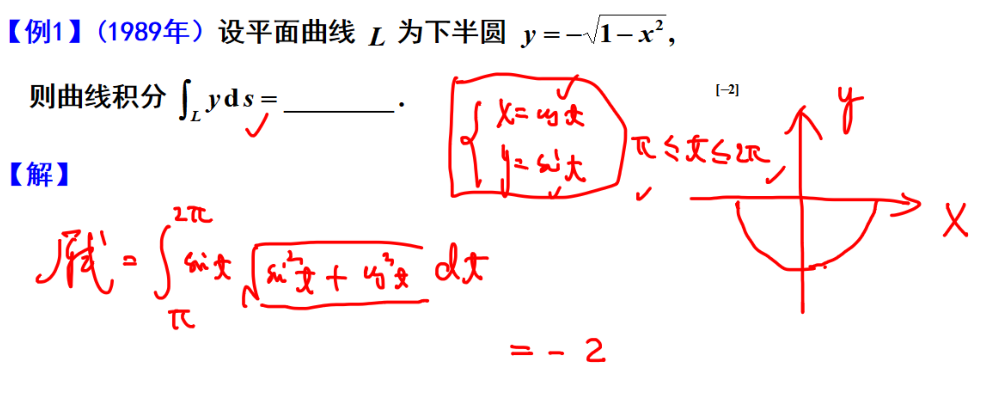 【例1】(1989年) 设平面曲线 L 为下半圆 y = −√(1−x²),
则曲线积分 ∫_L y ds = ________.
[−2]
{ x = cos t
y = sin t
π ≤ t ≤ 2π
y
x
【解】
原式 = ∫_π^{2π} sin t √(sin²t + cos²t) dt
= −2